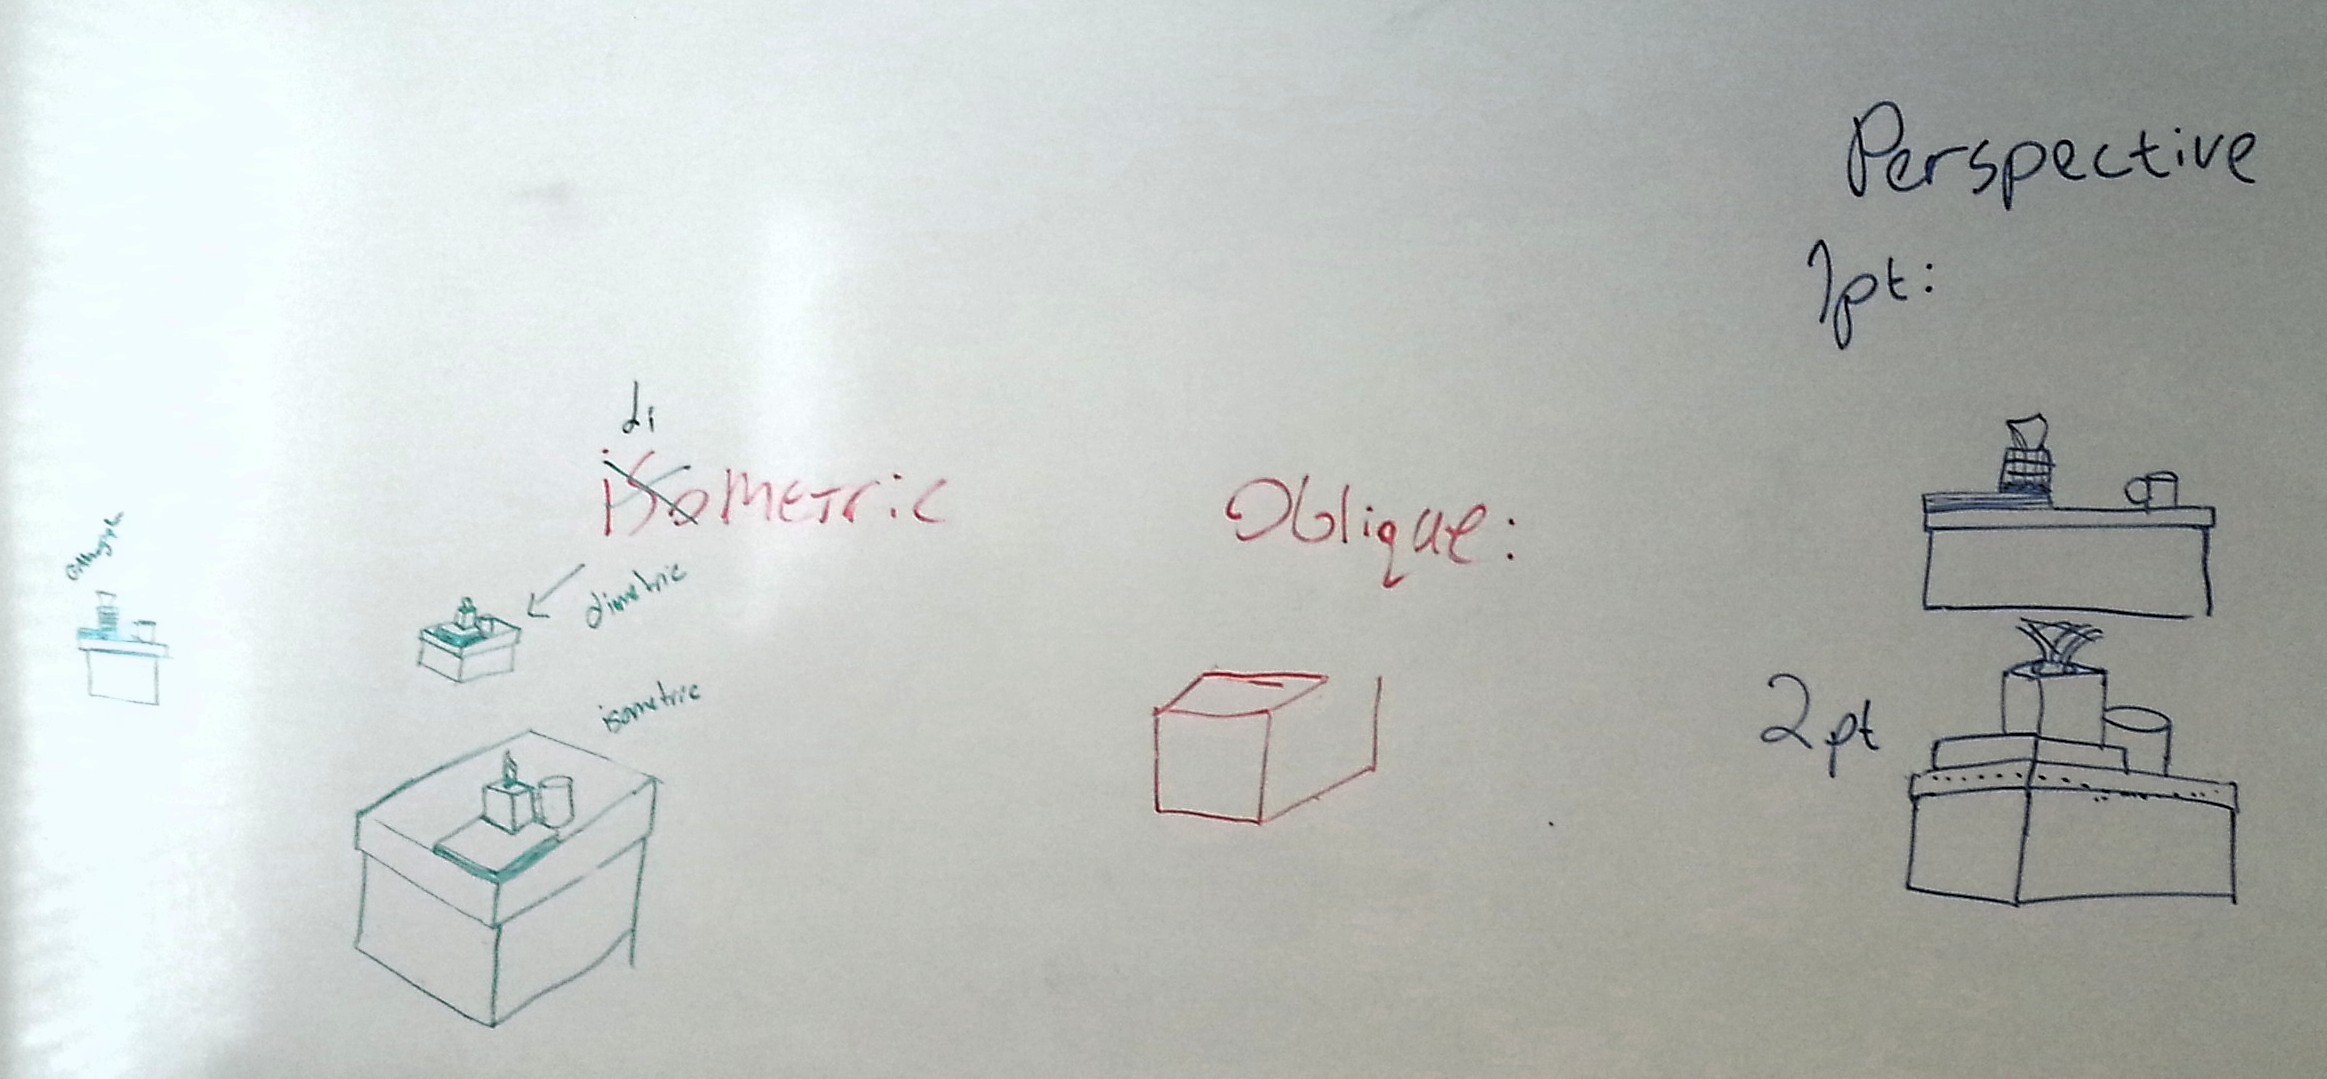 di
isometric
dimetric
isometric
Oblique:
Perspective
1pt:
2pt